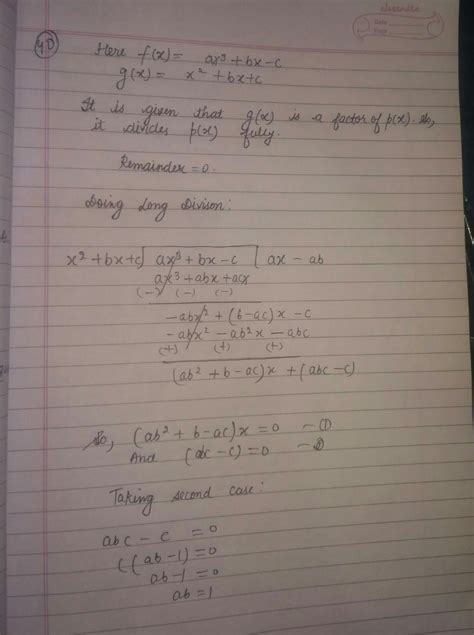 classmate
Date
Page
40)
Here f(x) = ax³ + bx - c
g(x) = x² + bx + c
It is given that g(x) is a factor of p(x). So,
it divides p(x) fully.
Remainder = 0.
Doing Long Divison:
x² + bx + c) ax³ + bx - c ( ax - ab
ax³ + abx + acx
(-) (-) (-)
-abx² + (b - ac)x - c
-abx² - ab²x - abc
(+) (+) (+)
(ab² + b - ac)x + (abc - c)
So, (ab² + b - ac)x = 0 - ①
And (abc - c) = 0 - ②
Taking second case:
abc - c = 0
c(ab - 1) = 0
ab - 1 = 0
ab = 1